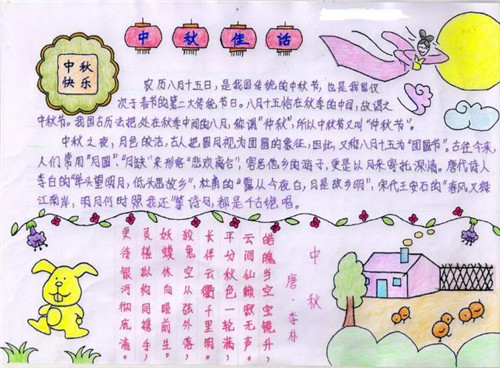 中秋佳话
中秋
快乐
农历八月十五日,是我国传统的中秋节,也是我国仅
次于春节的第二大传统节日。八月十五恰在秋季的中间,故谓之
中秋节。我国古历法把处在秋季中间的八月,称谓“仲秋”,所以中秋节又叫“仲秋节”。
中秋之夜,月色皎洁,古人把圆月视为团圆的象征,因此,又称八月十五为“团圆节”。古往今来,
人们常用“月圆”、“月缺”来形容“悲欢离合”,客居他乡的游子,更是以月来寄托深情。唐代诗人
李白的“举头望明月,低头思故乡”,杜甫的“露从今夜白,月是故乡明”,宋代王安石的“春风又绿
江南岸,明月何时照我还”等诗句,都是千古绝唱。
中秋
唐·李朴
皓魄当空宝镜升,
云间仙籁无声。
平分秋色一轮满,
长伴云衢千里明。
兔空从弦外落,
妖蟆休向眼前生。
灵槎拟约同携手,
更待银河彻底清。